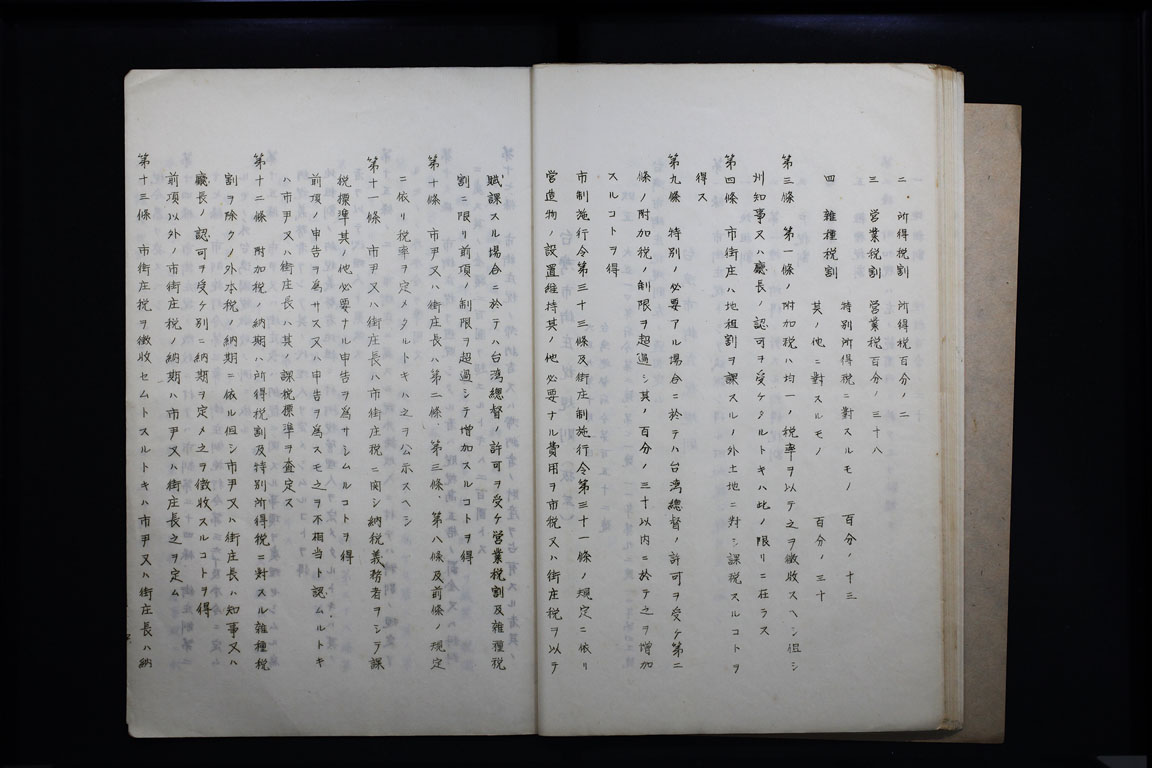 二、所得税割　所得税百分ノ二
三　営業税割　営業税百分ノ三十八
四　雑種税割　特別所得税ニ對スルモノ　百分ノ十三
其ノ他ニ對スルモノ　百分ノ三十
第三條　第一條ノ附加税ハ均一ノ税率ヲ以テ之ヲ徴收スヘシ但シ
州知事又ハ廳長ノ認可ヲ受ケタルトキハ此ノ限リニ在ラス
第四條　市街庄ハ地租割ヲ課スルノ外土地ニ對シ課税スルコトヲ
得ス
第九條　特別ノ必要アル場合ニ於テハ台湾總督ノ許可ヲ受ケ第二
條ノ附加税ノ制限ヲ超過シ其ノ百分ノ三十以内ニ於テ之ヲ増加
スルコトヲ得
市制施行令第三十三條及街庄制施行令第三十一條ノ規定ニ依リ
営造物ノ設置維持其ノ他必要ナル費用ヲ市税又ハ街庄税ヲ以テ
賦課スル場合ニ於テハ台湾總督ノ許可ヲ受ケ営業税割及雜種税
割ニ限リ前項ノ制限ヲ超過シテ増加スルコトヲ得
第十條　市尹又ハ街庄長ハ第二條、第三條、第八條及前條ノ規定
ニ依リ税率ヲ定メタルトキハ之ヲ公示スヘシ
第十一條　市尹又ハ街庄長ハ市街庄税ニ関シ納税義務者ヲシテ課
税標準其ノ他必要ナル申告ヲ爲サシムルコトヲ得
前項ノ申告ヲ爲サス又ハ申告ヲ爲スモ之ヲ不相当ト認ムルトキ
ハ市尹又ハ街庄長ハ其ノ課税標準ヲ査定ス
第十二條　附加税ノ納期ハ所得税割及特別所得税ニ對スル雜種税
割ヲ除クノ外本税ノ納期ニ依ル但シ市尹又ハ街庄長ハ知事又ハ
廳長ノ認可ヲ受ケ別ニ納期ヲ定メ之ヲ徴收スルコトヲ得
前項以外ノ市街庄税ノ納期ハ市尹又ハ街庄長之ヲ定ム
第十三條　市街庄税ヲ徴收セムトスルトキハ市尹又ハ街庄長ハ納